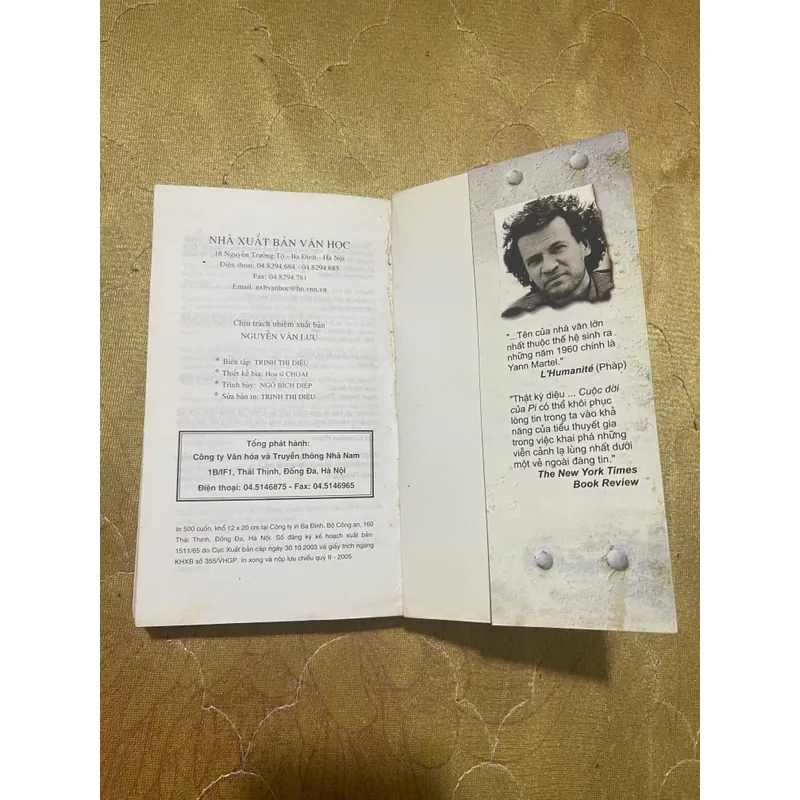 NHÀ XUẤT BẢN VĂN HỌC
18 Nguyễn Trường Tộ - Ba Đình - Hà Nội
Điện thoại: 04.8294.684 - 04.8294.685
Fax: 04.8294.781
Email: nxbvanhoc@hn.vnn.vn
Chịu trách nhiệm xuất bản
NGUYỄN VĂN LƯU
* Biên tập: TRỊNH THỊ DIỆU
* Thiết kế bìa: Họa sĩ CHOAI
* Trình bày: NGÔ BÍCH DIỆP
* Sửa bản in: TRỊNH THỊ DIỆU
Tổng phát hành:
Công ty Văn hóa và Truyền thông Nhã Nam
1B/IF1, Thái Thịnh, Đống Đa, Hà Nội
Điện thoại: 04.5146875 - Fax: 04.5146965
In 500 cuốn, khổ 12 x 20 cm tại Công ty in Ba Đình, Bộ Công an, 160
Thái Thịnh, Đống Đa, Hà Nội. Số đăng ký kế hoạch xuất bản:
1511/65 do Cục Xuất bản cấp ngày 30.10.2003 và giấy trích ngang
KHXB số 355/VHGP. In xong và nộp lưu chiểu quý II - 2005.
"...Tên của nhà văn lớn
nhất thuộc thế hệ sinh ra
những năm 1960 chính là
Yann Martel."
L'Humanité (Pháp)
"Thật kỳ diệu ... Cuộc đời
của Pi có thể khôi phục
lòng tin trong ta vào khả
năng của tiểu thuyết gia
trong việc khai phá những
viễn cảnh lạ lùng nhất dưới
một vẻ ngoài đáng tin."
The New York Times
Book Review